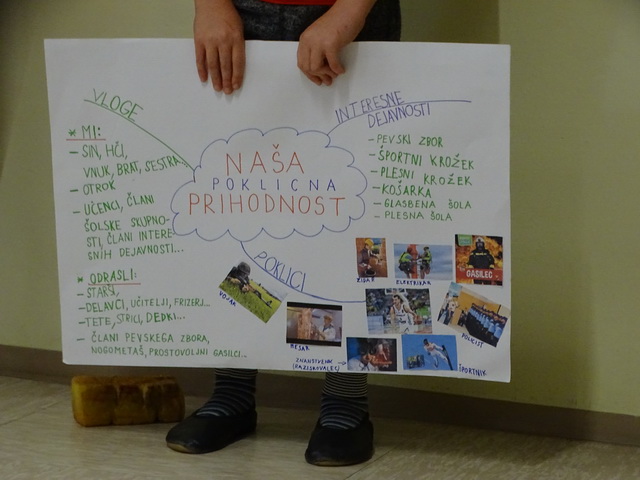 VLOGE
* MI:
- SIN, HČI,
VNUK, BRAT, SESTRA...
- OTROK
- UČENCI, ČLANI
ŠOLSKE SKUPNO-
STI, ČLANI INTERE
SNIH DEJAVNOSTI...
* ODRASLI:
- STARŠI,
- DELAVCI, UČITELJI, FRIZERJI...
- TETE, STRICI, DEDKI...
- ČLANI PEVSKEGA ZBORA,
NOGOMETAŠ, PROSTOVOLJNI GASILCI...
NAŠA
POKLICNA
PRIHODNOST
INTERESNE
DEJAVNOSTI
- PEVSKI ZBOR
- ŠPORTNI KROŽEK
- PLESNI KROŽEK
- KOŠARKA
- GLASBENA ŠOLA
- PLESNA ŠOLA
POKLICI
VOJAK
MESAR
ZNANSTVENIK
(RAZISKOVALEC)
ZIDAR
ELEKTRIKAR
GASILEC
POLICIST
ŠPORTNIK